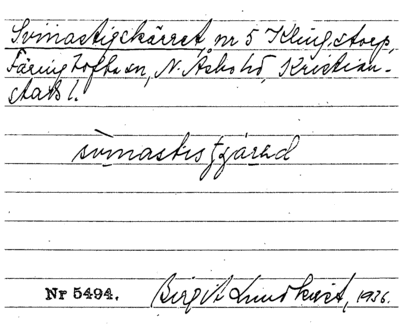 Svinastigekärret, nr 5 Klingstorp,
Färingtofta sn, N. Åsbo hd, Kristian-
stads l.
svinastis
Nr 5494. Birgit Lundkvist, 1936.